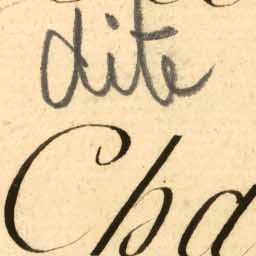 dite
Cha